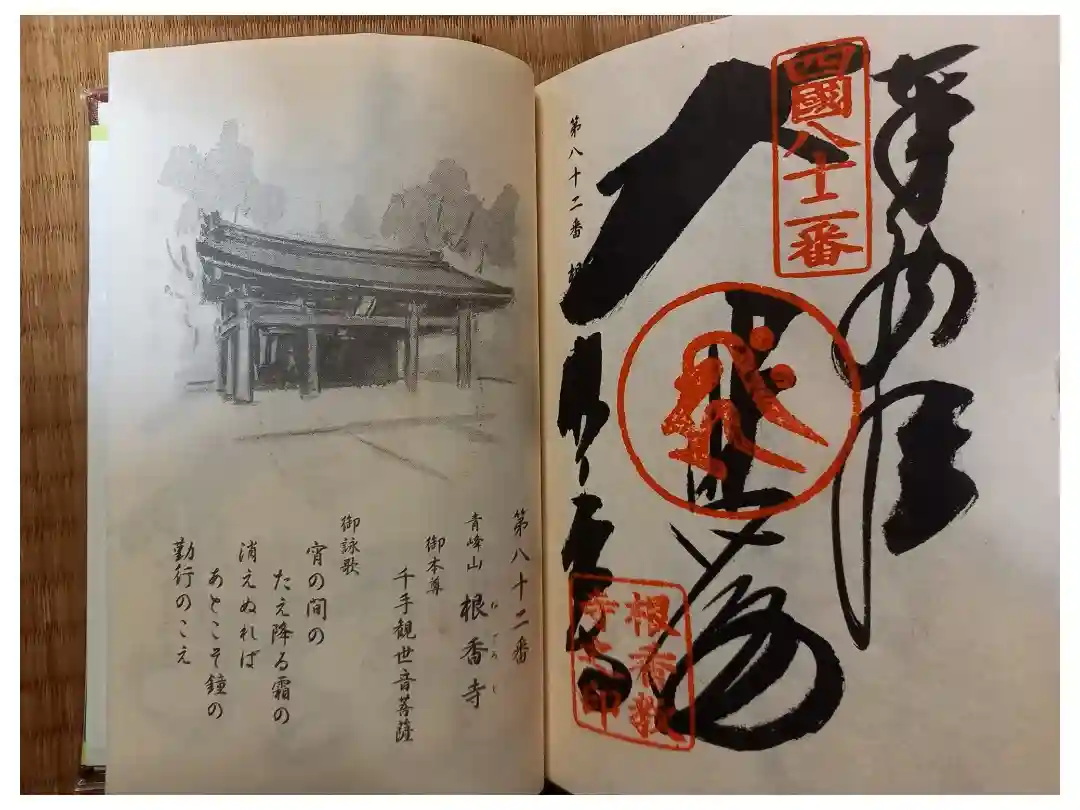 四國八十二番
根香教
寺之印
第八十二番
第八十二番
青峰山 根香寺
ねごろじ
御本尊
千手観世音菩薩
御詠歌
宵の間の
たえ降る霜の
消えぬれば
あとこそ鐘の
勤行のこえ